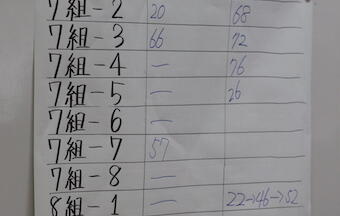 7組-2 20 68
7組-3 66 72
7組-4 — 76
7組-5 — 26
7組-6 —
7組-7 57
7組-8 —
8組-1 22→46→52